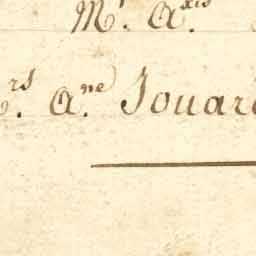 Mr. Axis.
rs. Ane. Jouar